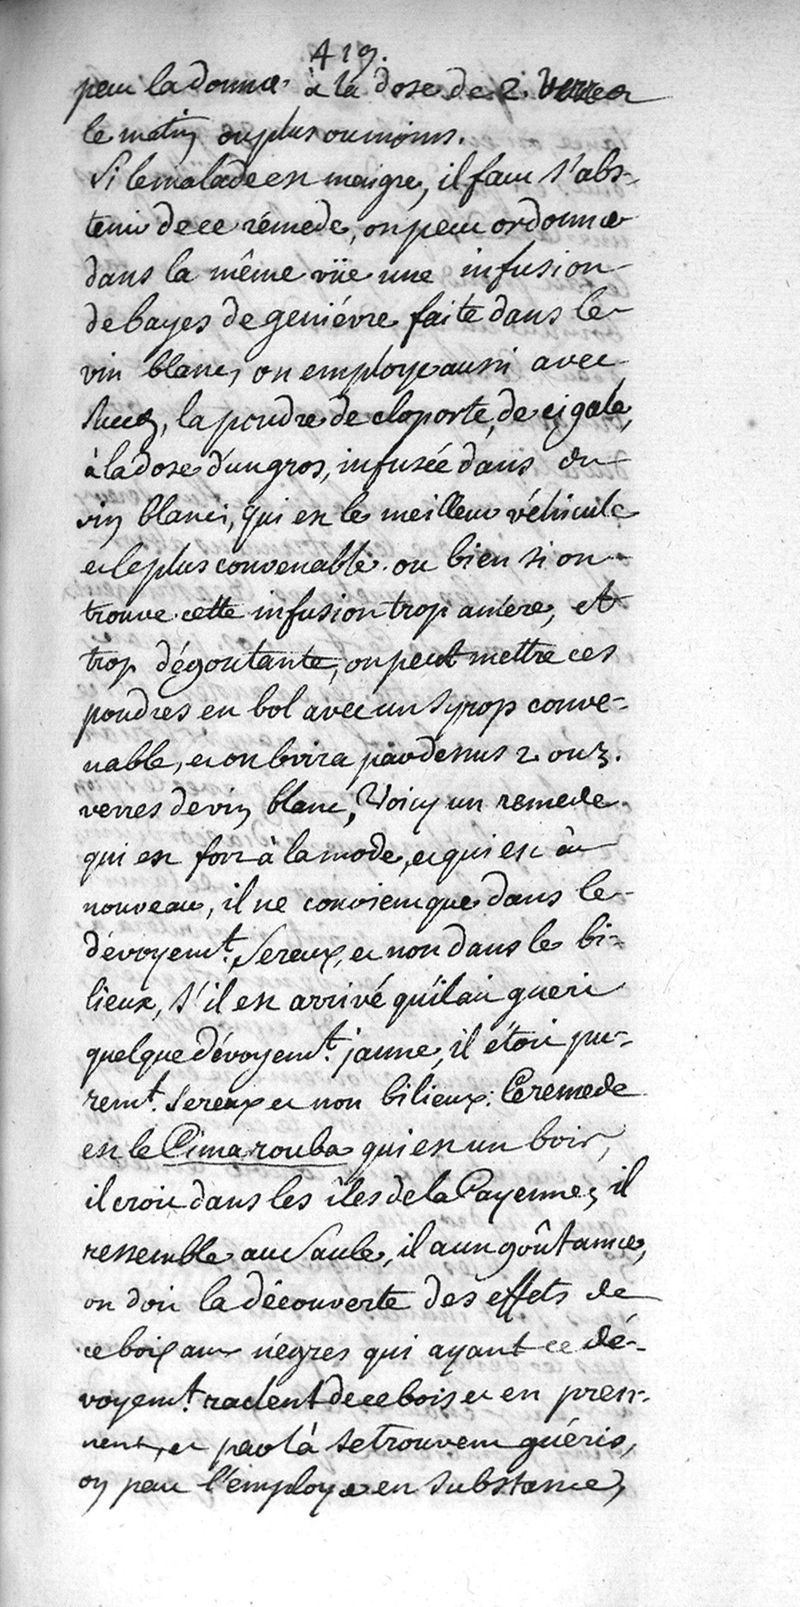 419.
peut la donner à la dose de 2. verres
le matin ou plus ou moins.
Si le malade est maigre, il faut s'abs-
tenir de ce rémede, on peut ordonner
dans la même vüe une infusion
de bayes de geniévre faite dans le
vin blanc, on employe aussi avec
succez, la poudre de cloporte, de cigale,
à la dose d'un gros, infusée dans du
vin blanc, qui est le meilleur véhicule
et le plus convenable. ou bien si on
trouve cette infusion trop amere, et
trop dégoutante, on peut mettre ces
poudres en bol avec un syrop conve-
nable, et on boira par dessus 2 ou 3.
verres de vin blanc, Voicy un remede
qui est fort à la mode, et qui est
nouveau, il ne convient que dans le
dévoyemt. sereux, et non dans le bi-
lieux, s'il est arrivé qu'il ait gueri
quelque dévoyemt. jaune, il étoit pu-
remt. sereux et non bilieux: Ce remede
est le Cimarouba qui est un bois,
il croit dans les îles de la Cayenne, il
ressemble au Saule, il a un goût amer,
on doit la découverte des effets de
ce bois aux négres qui ayant ce dé-
voyemt. raclent de ce bois et en pren-
nent, et par là se trouvent guéris,
on peut l'employer en substance,